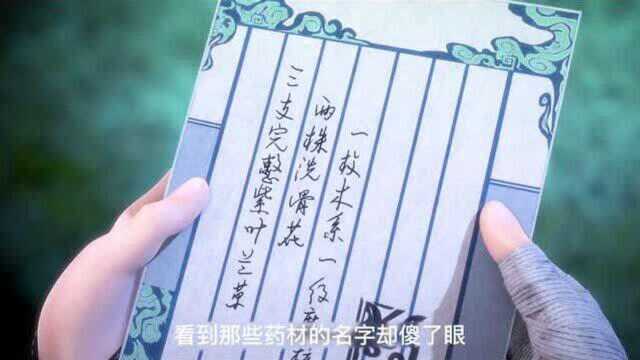 一枚木系一级
两株洗骨花
三支完整紫叶兰草
看到那些药材的名字却傻了眼